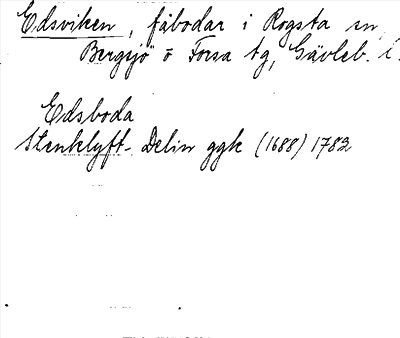 Edsviken, fäbodar i Rogsta sn
Bergsjö o Forsa tg, Gävleb. l.
Edsboda
Stenklyft- Delin ggk (1688) 1782